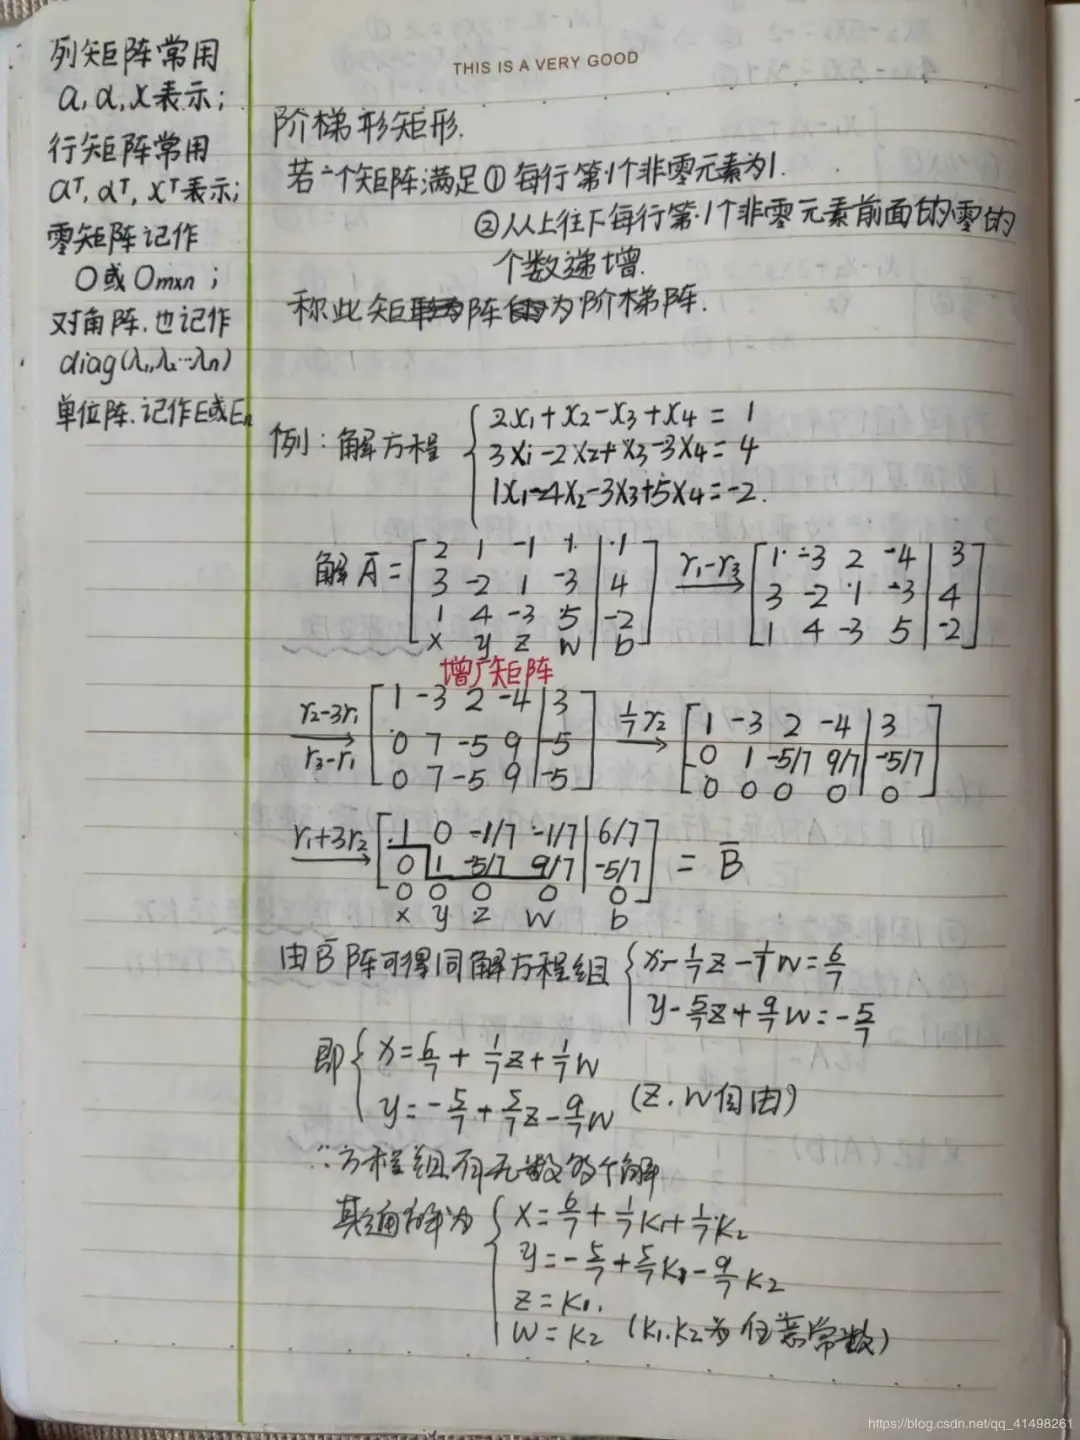 THIS IS A VERY GOOD
列矩阵常用
a, α, x表示;
行矩阵常用
aᵀ, αᵀ, xᵀ表示;
零矩阵记作
O或Omxn ;
对角阵.也记作
diag(λ₁,λ₂…λn)
单位阵.记作E或En
阶梯形矩形.
若一个矩阵满足①每行第1个非零元素为1.
②从从上往下每行第1个非零元素前面的零的
个数递增.
称此矩阵为阶梯阵.
例:解方程
2x₁+x₂-x₃+x₄= 1
3x₁-2x₂+x₃-3x₄= 4
1x₁-4x₂-3x₃+5x₄=-2.
解 Ā=
2 1 -1 1 | 1
3 -2 1 -3 | 4
1 4 -3 5 | -2
x y z w | b
增广矩阵
r₁-r₃
1 -3 2 -4 | 3
3 -2 1 -3 | 4
1 4 -3 5 | -2
r₂-3r₁
r₃-r₁
1 -3 2 -4 | 3
0 7 -5 9 | -5
0 7 -5 9 | -5
1/7 r₂
1 -3 2 -4 | 3
0 1 -5/7 9/7 | -5/7
0 0 0 0 | 0
r₁+3r₂
1 0 -1/7 -1/7 | 6/7
0 1 -5/7 9/7 | -5/7
0 0 0 0 | 0
x y z w b
= B̄
由B̄阵可得同解方程组
x-1/7z-1/7w=6/7
y-5/7z+9/7w=-5/7
即
x=6/7+1/7z+1/7w
y=-5/7+5/7z-9/7w (z.w自由)
∴方程组有无数多个解
其通解为
x=6/7+1/7k₁+1/7k₂
y=-5/7+5/7k₁-9/7k₂
z=k₁.
w=k₂ (k₁.k₂为任意常数)
https://blog.csdn.net/qq_41498261